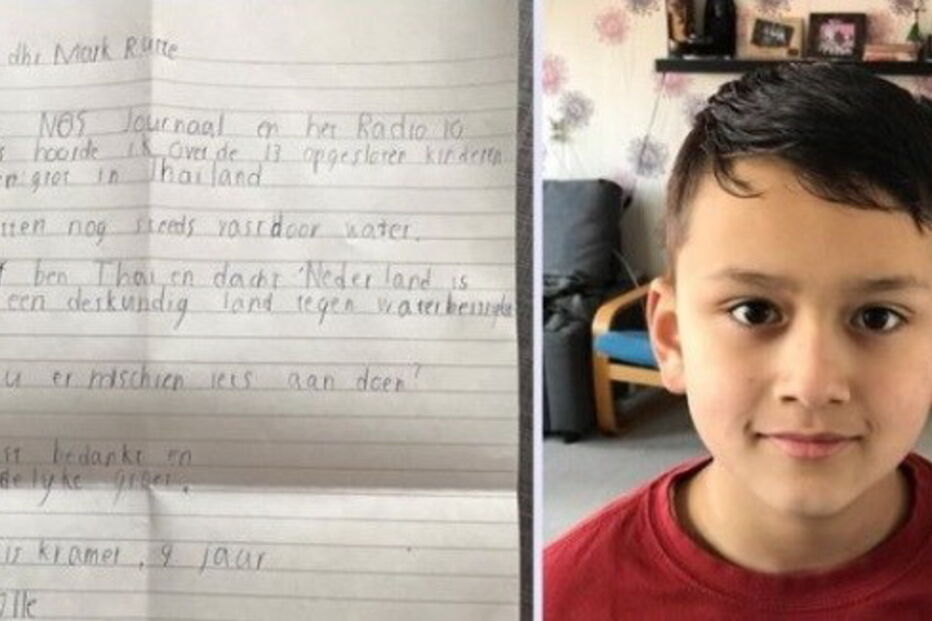 dhr Mark Rutte
NOS Journaal en het Radio 10
hoorde ik over de 13 opgesloten kinderen
grot in Thailand
nog steeds vast door water.
ben Thai en dacht Nederland is
een deskundig land tegen
u er mischien iets aan doen?
bedankt en
kramer, 9 jaar